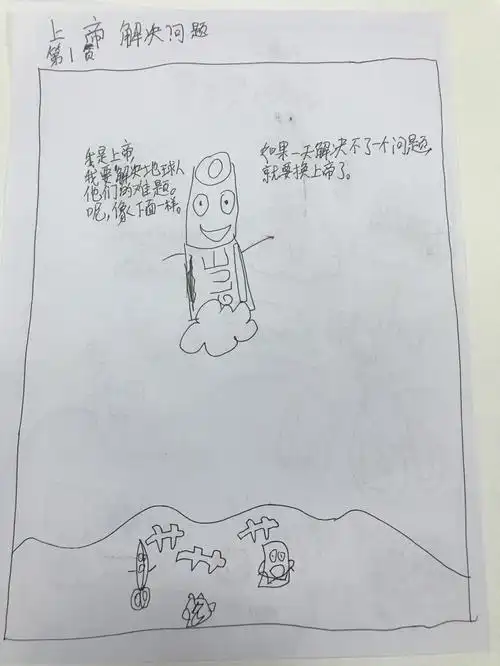 上帝解决问题
第1页
我是上帝,
我要解决地球人
他们的难题。
呢,像下面一样。
如果一天解决不了一个问题,
就要换上帝了。